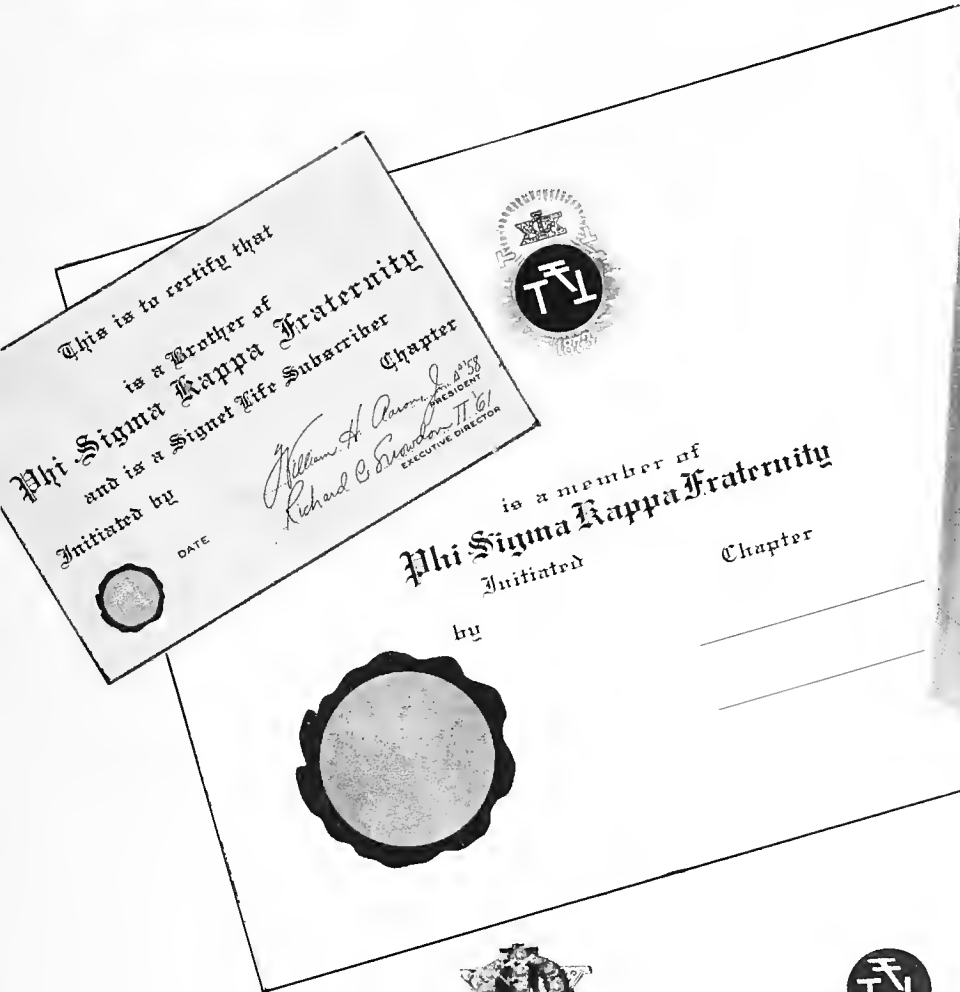 This is to certify that
is a Brother of
Phi Sigma Kappa Fraternity
and is a Signet Life Subscriber
Chapter
Initiated by
William H. Aaron, Jr.
PRESIDENT
Richard C. Snowdon II '61
EXECUTIVE DIRECTOR
DATE
1873
is a member of
Phi Sigma Kappa Fraternity
Initiated
Chapter
by